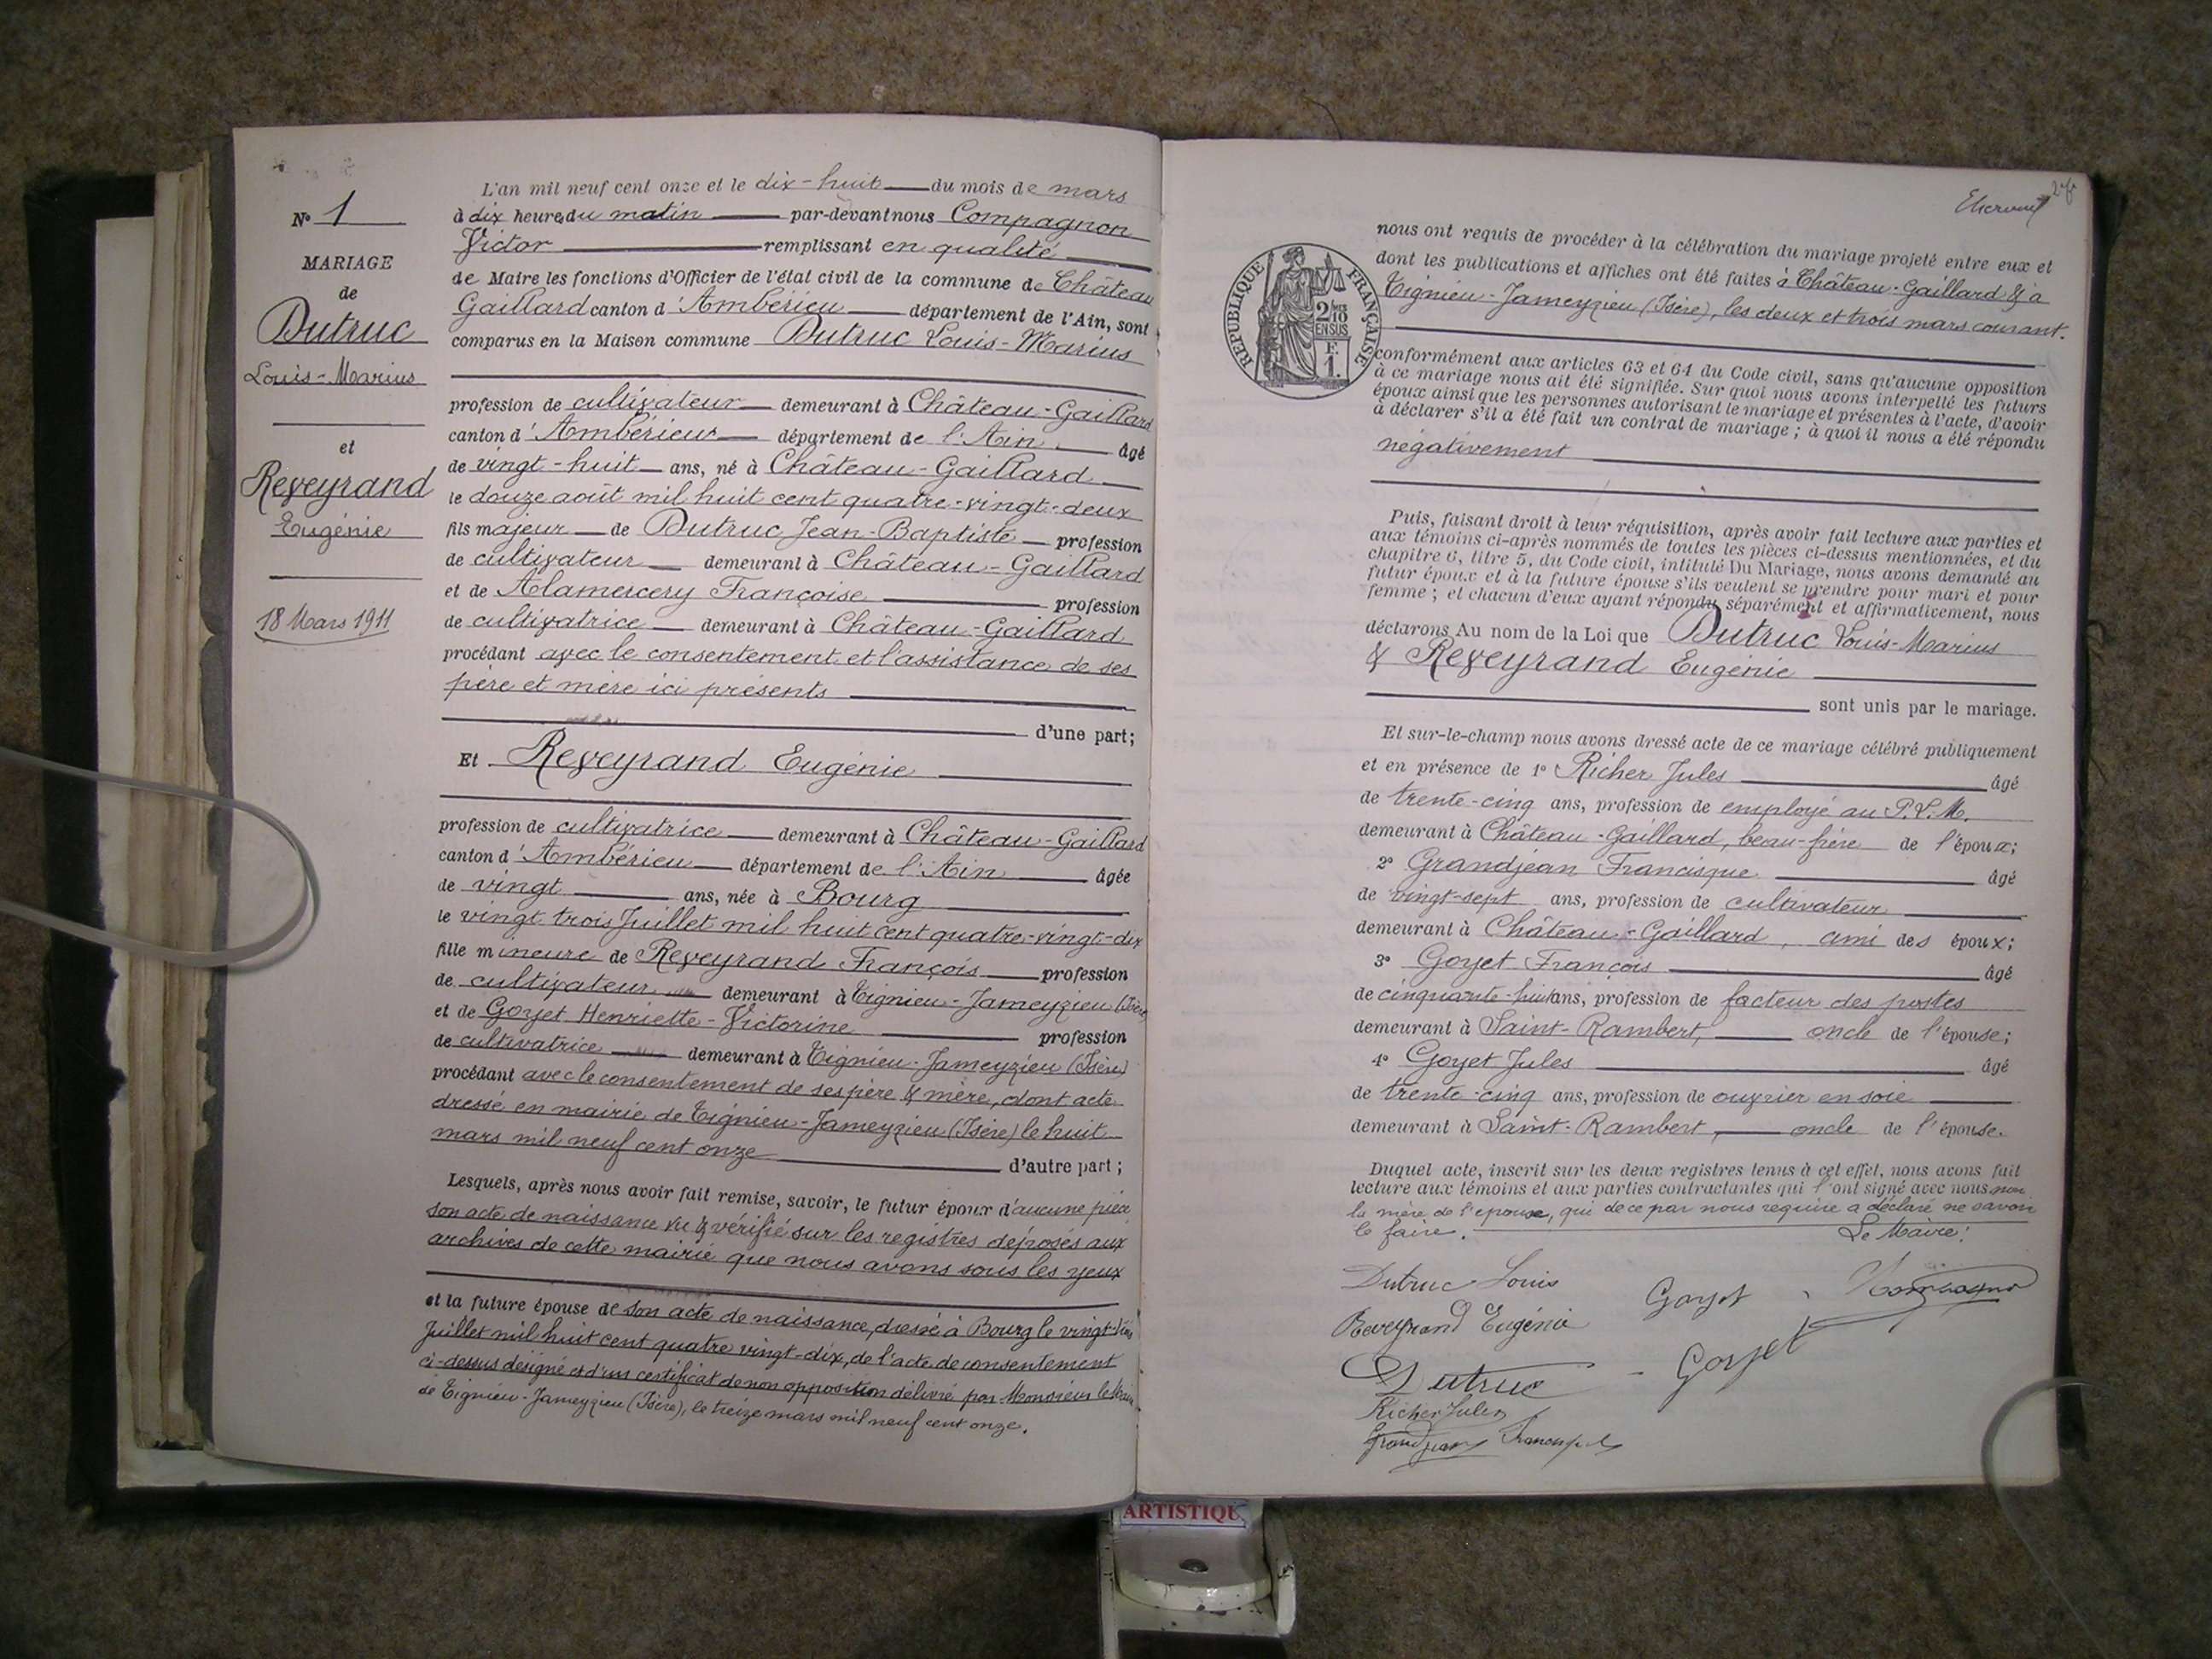 N° 1
MARIAGE
de
Dutruc
Louis-Marius
et
Reveyrand
Eugénie
18 Mars 1911
L'an mil neuf cent onze et le dix-huit du mois de mars
à dix heures du matin par-devant nous Compagnon
Victor remplissant en qualité
de Maire les fonctions d'Officier de l'état civil de la commune de Château
Gaillard canton d'Ambérieu département de l'Ain, sont
comparus en la Maison commune Dutruc Louis-Marius
profession de cultivateur demeurant à Château-Gaillard
canton d'Ambérieu département de l'Ain âgé
de vingt-huit ans, né à Château-Gaillard
le douze août mil huit cent quatre-vingt-deux
fils majeur de Dutruc Jean-Baptiste profession
de cultivateur demeurant à Château-Gaillard
et de Alamercery Françoise profession
de cultivatrice demeurant à Château-Gaillard
procédant avec le consentement et l'assistance de ses
père et mère ici présents
d'une part;
Et Reveyrand Eugénie
profession de cultivatrice demeurant à Château-Gaillard
canton d'Ambérieu département de l'Ain âgée
de vingt ans, née à Bourg
le vingt trois Juillet mil huit cent quatre-vingt-dix
fille mineure de Reveyrand François profession
de cultivateur demeurant à Tignieu-Jameyzieu (Isère)
et de Goyet Henriette-Victorine profession
de cultivatrice demeurant à Tignieu-Jameyzieu (Isère)
procédant avec le consentement de ses père & mère, dont acte
dressé en mairie de Tignieu-Jameyzieu (Isère) le huit
mars mil neuf cent onze d'autre part;
Lesquels, après nous avoir fait remise, savoir, le futur époux d'aucune pièce
son acte de naissance vu & vérifié sur les registres déposés aux
archives de cette mairie que nous avons sous les yeux
et la future épouse de son acte de naissance, dressé à Bourg le vingt-trois
Juillet mil huit cent quatre vingt-dix, de l'acte de consentement
ci-dessus désigné et d'un certificat de non opposition délivré par Monsieur le Maire
de Tignieu-Jameyzieu (Isère), le treize mars mil neuf cent onze.
RÉPUBLIQUE FRANÇAISE
2/10
EN SUS
F.
1.
nous ont requis de procéder à la célébration du mariage projeté entre eux et
dont les publications et affiches ont été faites à Château-Gaillard & à
Tignieu-Jameyzieu (Isère), les deux et trois mars courant.
conformément aux articles 63 et 64 du Code civil, sans qu'aucune opposition
à ce mariage nous ait été signifiée. Sur quoi nous avons interpellé les futurs
époux ainsi que les personnes autorisant le mariage et présentes à l'acte, d'avoir
à déclarer s'il a été fait un contrat de mariage; à quoi il nous a été répondu
négativement
Puis, faisant droit à leur réquisition, après avoir fait lecture aux parties et
aux témoins ci-après nommés de toutes les pièces ci-dessus mentionnées, et du
chapitre 6, titre 5, du Code civil, intitulé Du Mariage, nous avons demandé au
futur époux et à la future épouse s'ils veulent se prendre pour mari et pour
femme; et chacun d'eux ayant répondu séparément et affirmativement, nous
déclarons Au nom de la Loi que Dutruc Louis-Marius
& Reveyrand Eugénie
sont unis par le mariage.
Et sur-le-champ nous avons dressé acte de ce mariage célébré publiquement
et en présence de 1° Richer Jules âgé
de trente-cinq ans, profession de employé au P.L.M.
demeurant à Château-Gaillard, beau-frère de l'époux;
2° Grandjean Francisque âgé
de vingt-sept ans, profession de cultivateur
demeurant à Château-Gaillard, ami des époux;
3° Goyet François âgé
de cinquante-huit ans, profession de facteur des postes
demeurant à Saint-Rambert, oncle de l'épouse;
4° Goyet Jules âgé
de trente-cinq ans, profession de ouvrier en soie
demeurant à Saint-Rambert, oncle de l'épouse.
Duquel acte, inscrit sur les deux registres tenus à cet effet, nous avons fait
lecture aux témoins et aux parties contractantes qui l'ont signé avec nous non
la mère de l'épouse, qui de ce par nous requise a déclaré ne savoir
le faire. Le Maire:
Dutruc Louis
Goyet
Compagnon
Reveyrand Eugénie
Goyet
Dutruc
Richer Jules
Grandjean Francisque
ARTISTIQUE